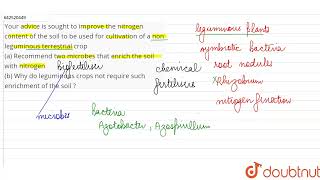 642520449
Your advice is sought to improve the nitrogen
content of the soil to be used for cultivation of a non-
leguminous terrestrial crop
(a) Recommend two microbes that enrich the soil
with nitrogen
(b) Why do leguminous crops not require such
enrichment of the soil ?
biofertiliser
chemical
fertilisers
microbes
bacteria
Azotobacter, Azospirillum
leguminous plants
symbiotic bacteria
root nodules
Rhizobium
nitrogen fixation
doubtnut